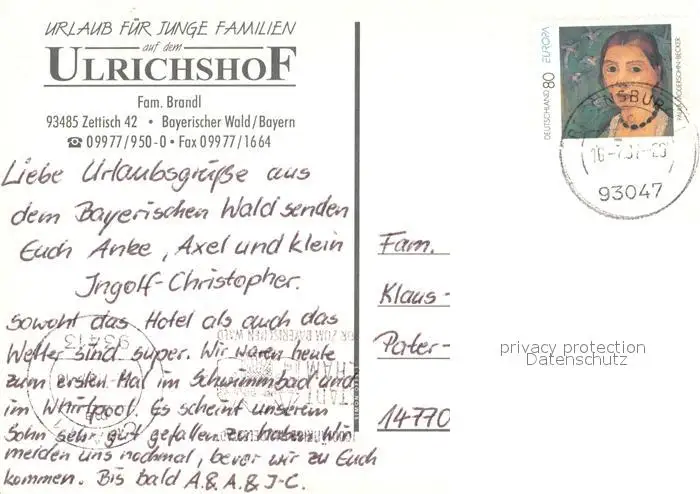 URLAUB FÜR JUNGE FAMILIEN
auf dem
ULRICHSHOF
Fam. Brandl
93485 Zettisch 42 • Bayerischer Wald/Bayern
☎ 09977/950-0 • Fax 09977/1664
Liebe Urlaubsgrüße aus
dem Bayerischen Wald senden
Euch Anke, Axel und klein
Ingolf-Christopher.
Sowohl das Hotel als auch das
Wetter sind super. Wir waren heute
zum ersten Mal im Schwimmbad und
im Whirlpool. Es scheint unserem
Sohn sehr gut gefallen zu haben. Wir
melden uns nochmal, bevor wir zu Euch
kommen. Bis bald A.& A.& I-C.
93413
CHAM
STADT
DEUTSCHLAND 80 EUROPA
PAULA MODERSOHN-BECKER
ENSBUR
93047
Fam.
Klaus-
Pater-
14770
privacy protection
Datenschutz